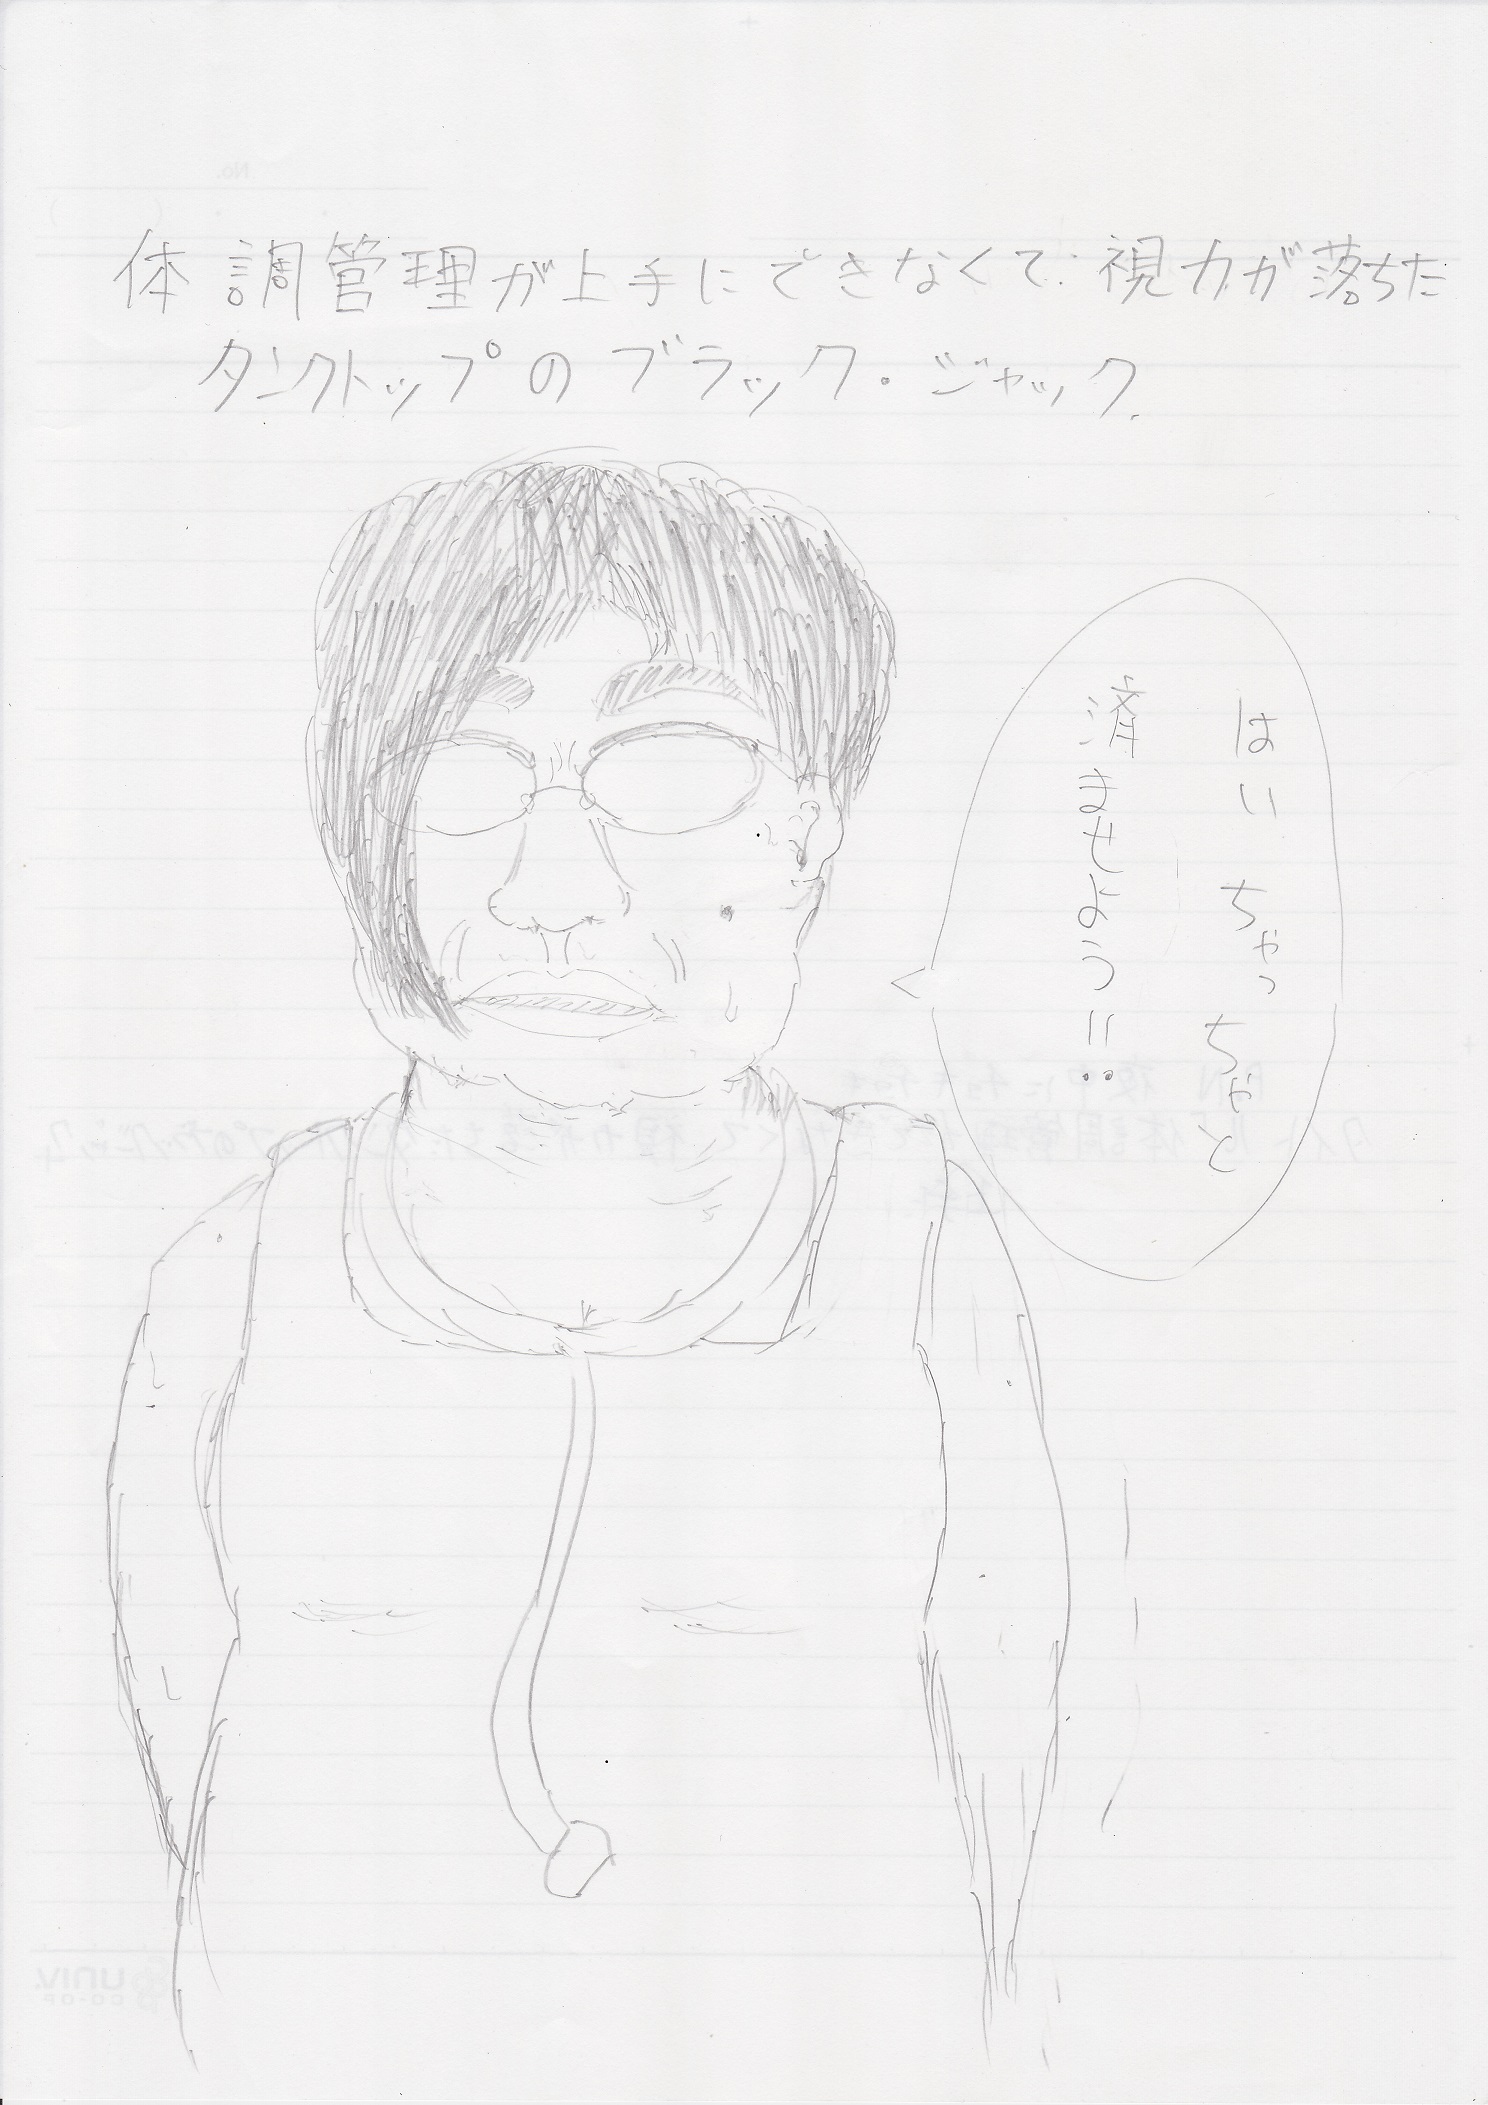 体調管理が上手にできなくて視力が落ちた
タンクトップのブラック・ジャック.
はいちゃっちゃと
済ませよう!!